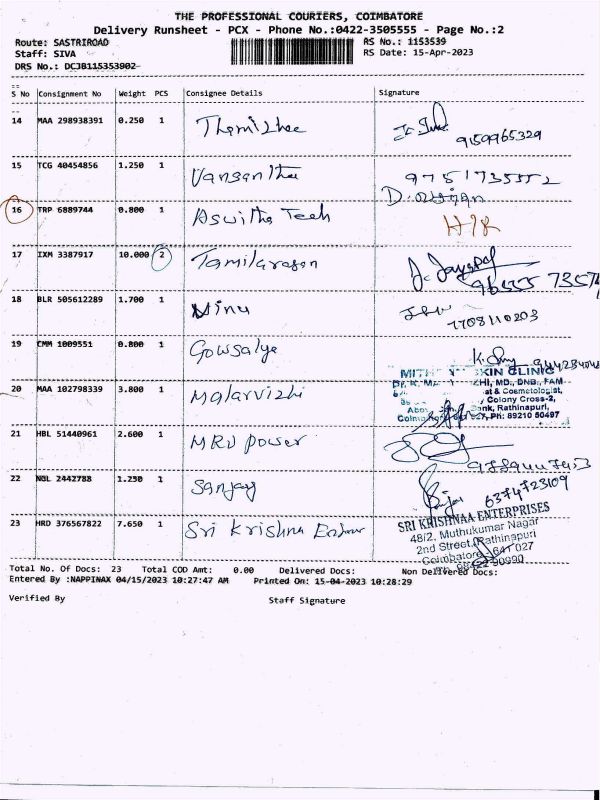 THE PROFESSIONAL COURIERS, COIMBATORE
Delivery Runsheet - PCX - Phone No.:0422-3505555 - Page No.:2
Route: SASTRIROAD RS No.: 1153539
Staff: SIVA RS Date: 15-Apr-2023
DRS No.: DCJB115353902
S No Consignment No Weight PCS Consignee Details Signature
14 MAA 298938391 0.250 1 Thamizhee
9159965329
15 TCG 40454856 1.250 1 Vangantha 9751735552
16 TRP 6889744 0.800 1 Aswitha Tech
17 IXM 3387917 10.000 2 Tamilarasan J. Jayapal
18 BLR 505612289 1.700 1 Minu
7708110203
19 CMM 1009551 0.800 1 Gowsalya
SKIN CLINIC
MD., DNB., FAM
20 MAA 102798339 3.800 1 Malarvizhi & Cosmetologist,
Colony Cross-2,
Bank, Rathinapuri,
Ph: 89210 50497
21 HBL 51440961 2.600 1 MRV Power
22 NGL 2442788 1.250 1 Sanjay
6374723109
23 HRD 376567822 7.650 1 Sri Krishna SRI KRISHNAA ENTERPRISES
48/2, Muthukumar Nagar
2nd Street, Rathinapuri
Coimbatore - 641 027
Total No. Of Docs: 23 Total COD Amt: 0.00 Delivered Docs: Non Delivered Docs:
Entered By :NAPPINAX 04/15/2023 10:27:47 AM Printed On: 15-04-2023 10:28:29
Verified By Staff Signature